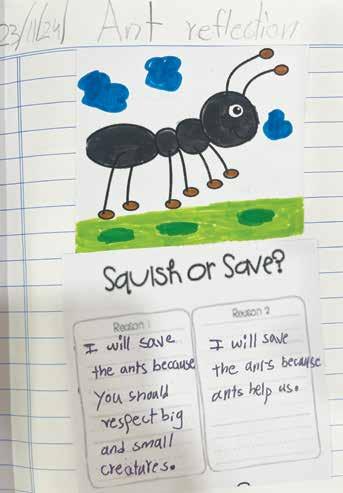 23/11/24) Ant reflection
Squish or Save?
Reason 1
I will save
the ants because
you should
respect big
and small
creatures.
Reason 2
I will save
the ants because
ants help us.